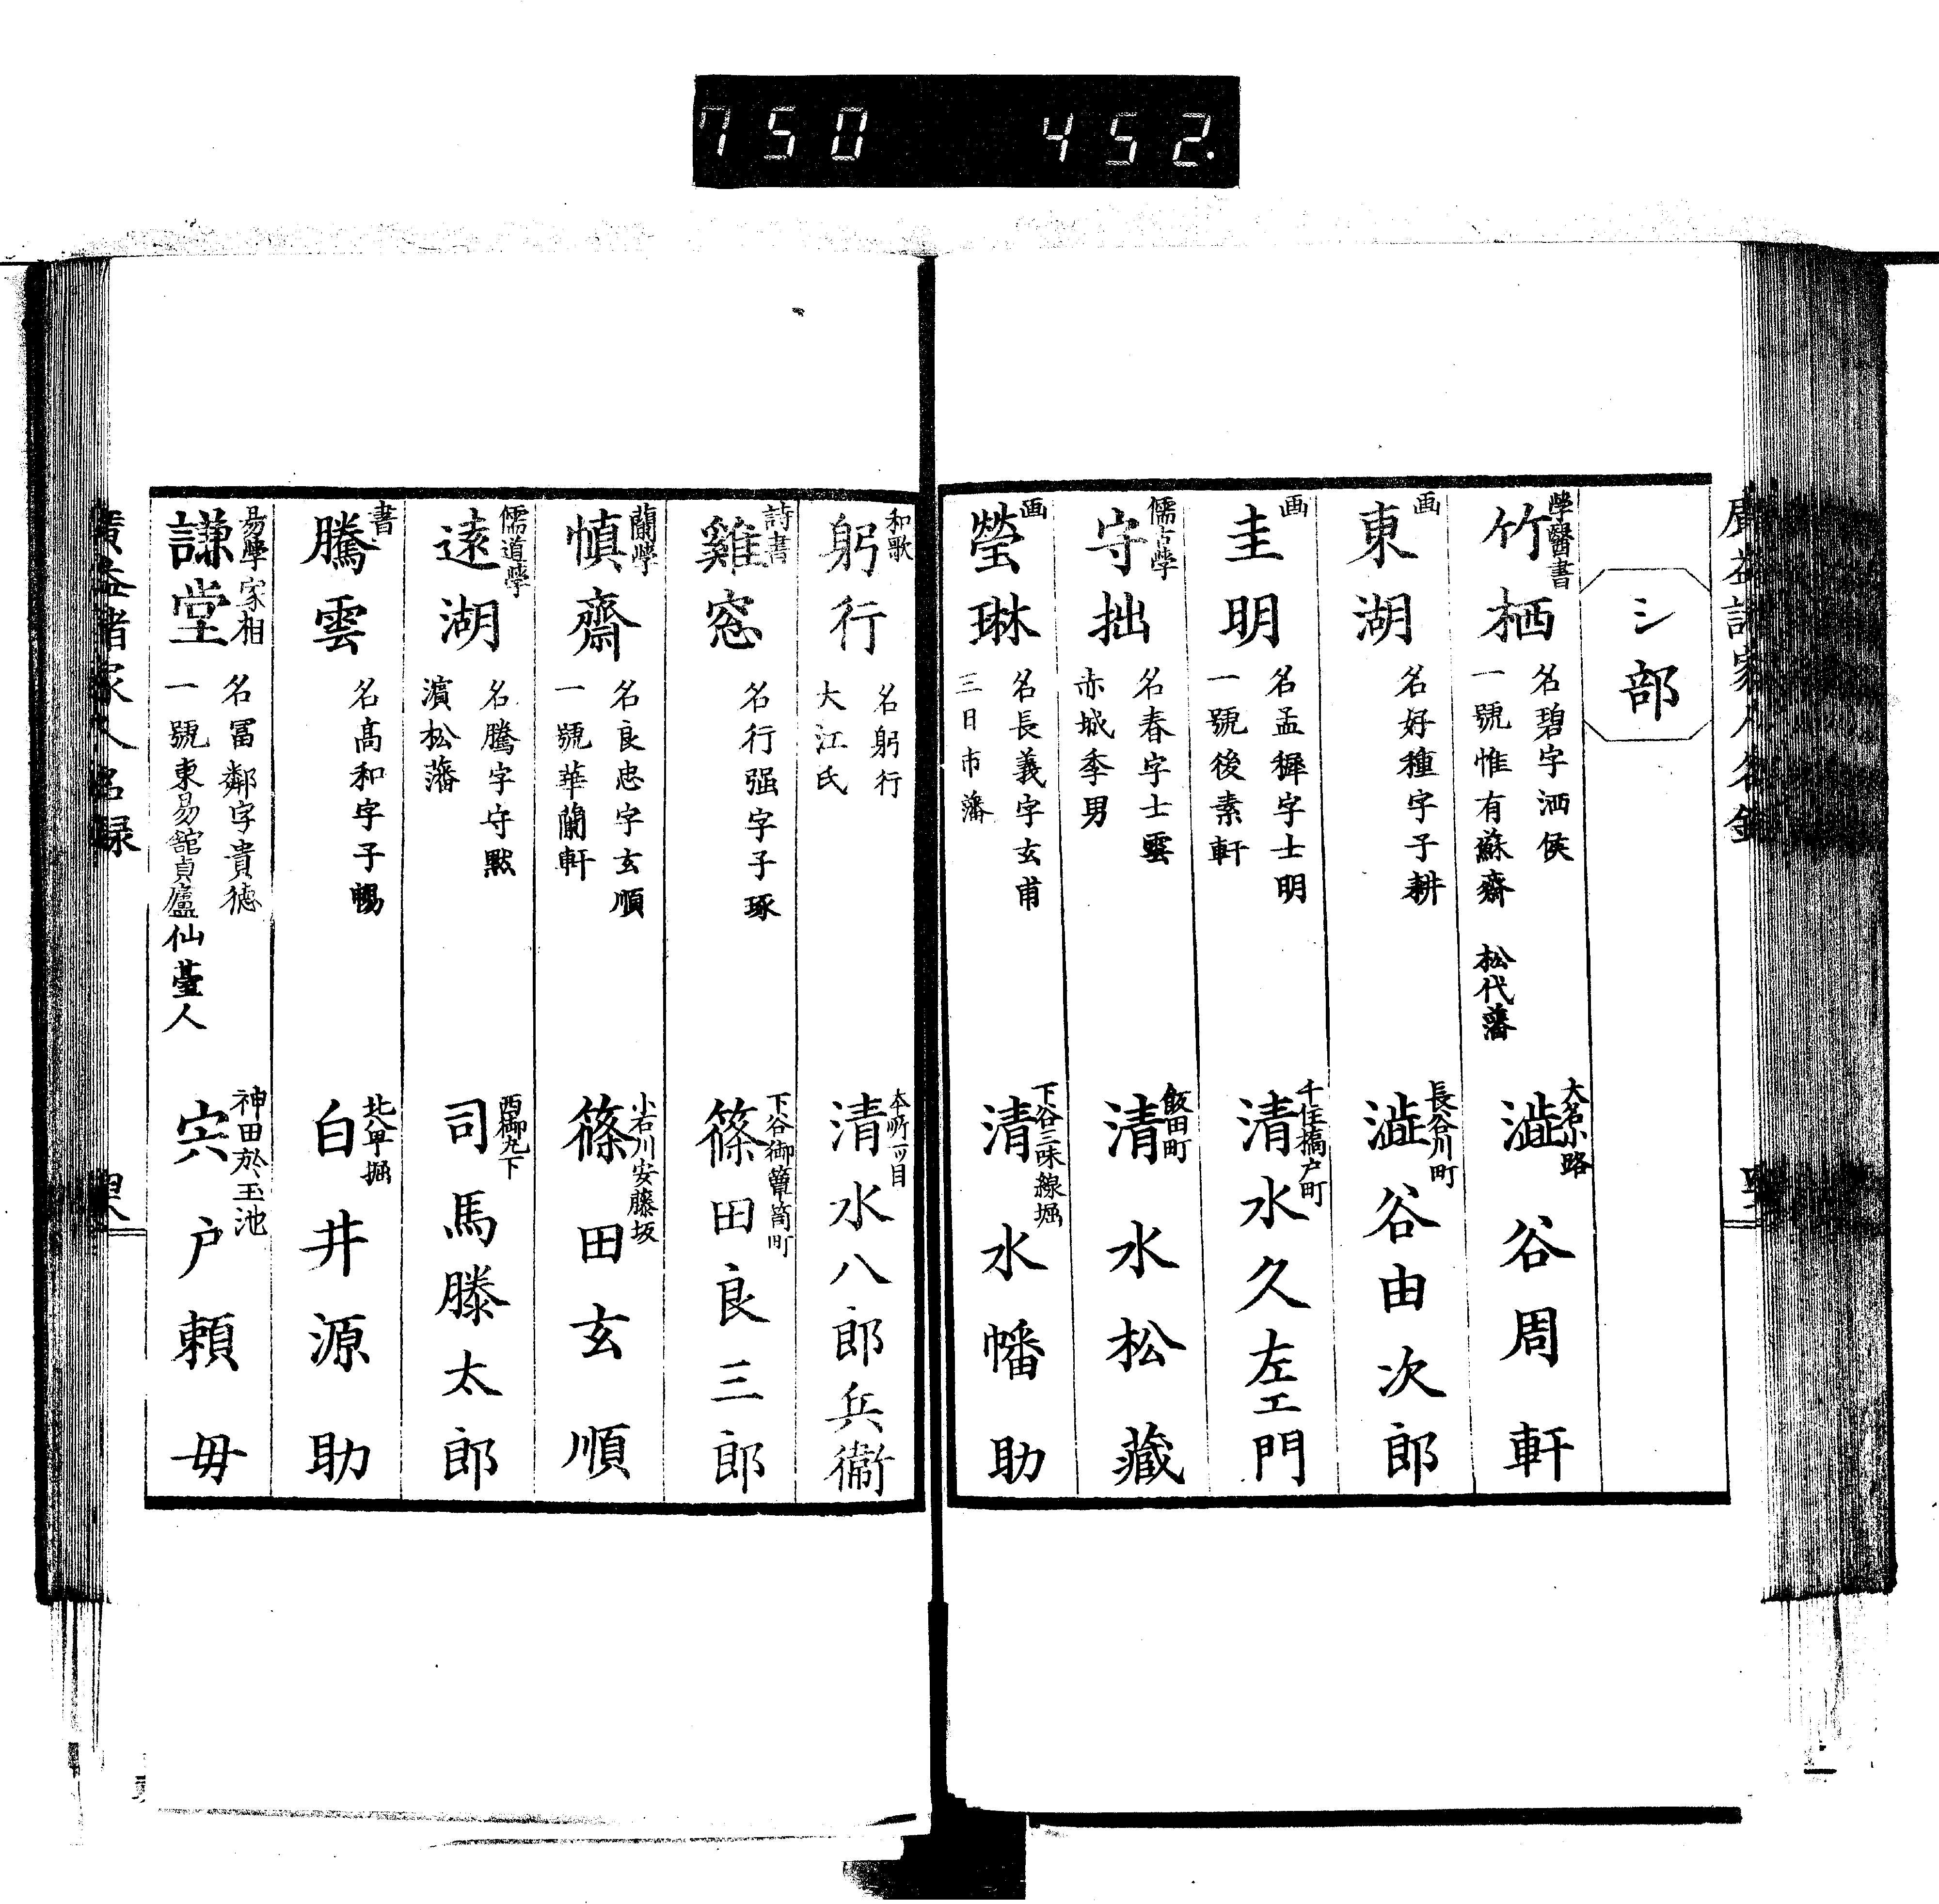 750 452.
シ部
學醫書
竹栖
名碧字洒侯
一號惟有蘇齋 松代藩
大名小路
澁谷周軒
画
東湖
名好種字子耕
長谷川町
澁谷由次郎
画
圭明
名孟穉字士明
一號後素軒
千住橋戸町
清水久左工門
儒古學
守拙
名春字士雲
赤城季男
飯田町
清水松藏
画
瑩琳
名長義字玄甫
三日市藩
下谷三味線堀
清水幡助
和歌
躬行
名躬行
大江氏
本所一ツ目
清水八郎兵衞
詩書
雞窓
名行强字子琢
下谷御簞笥町
篠田良三郎
蘭學
愼齋
名良忠字玄順
一號華蘭軒
小石川安藤坂
篠田玄順
儒道學
遠湖
名騰字守默
濱松藩
西御丸下
司馬滕太郎
書
騰雲
名高和字子暢
北八甲堀
白井源助
易學家相
謙堂
名冨鄰字貴德
一號東易舘貞廬仙臺人
神田於玉池
宍戸頼母
廣益諸家人名録